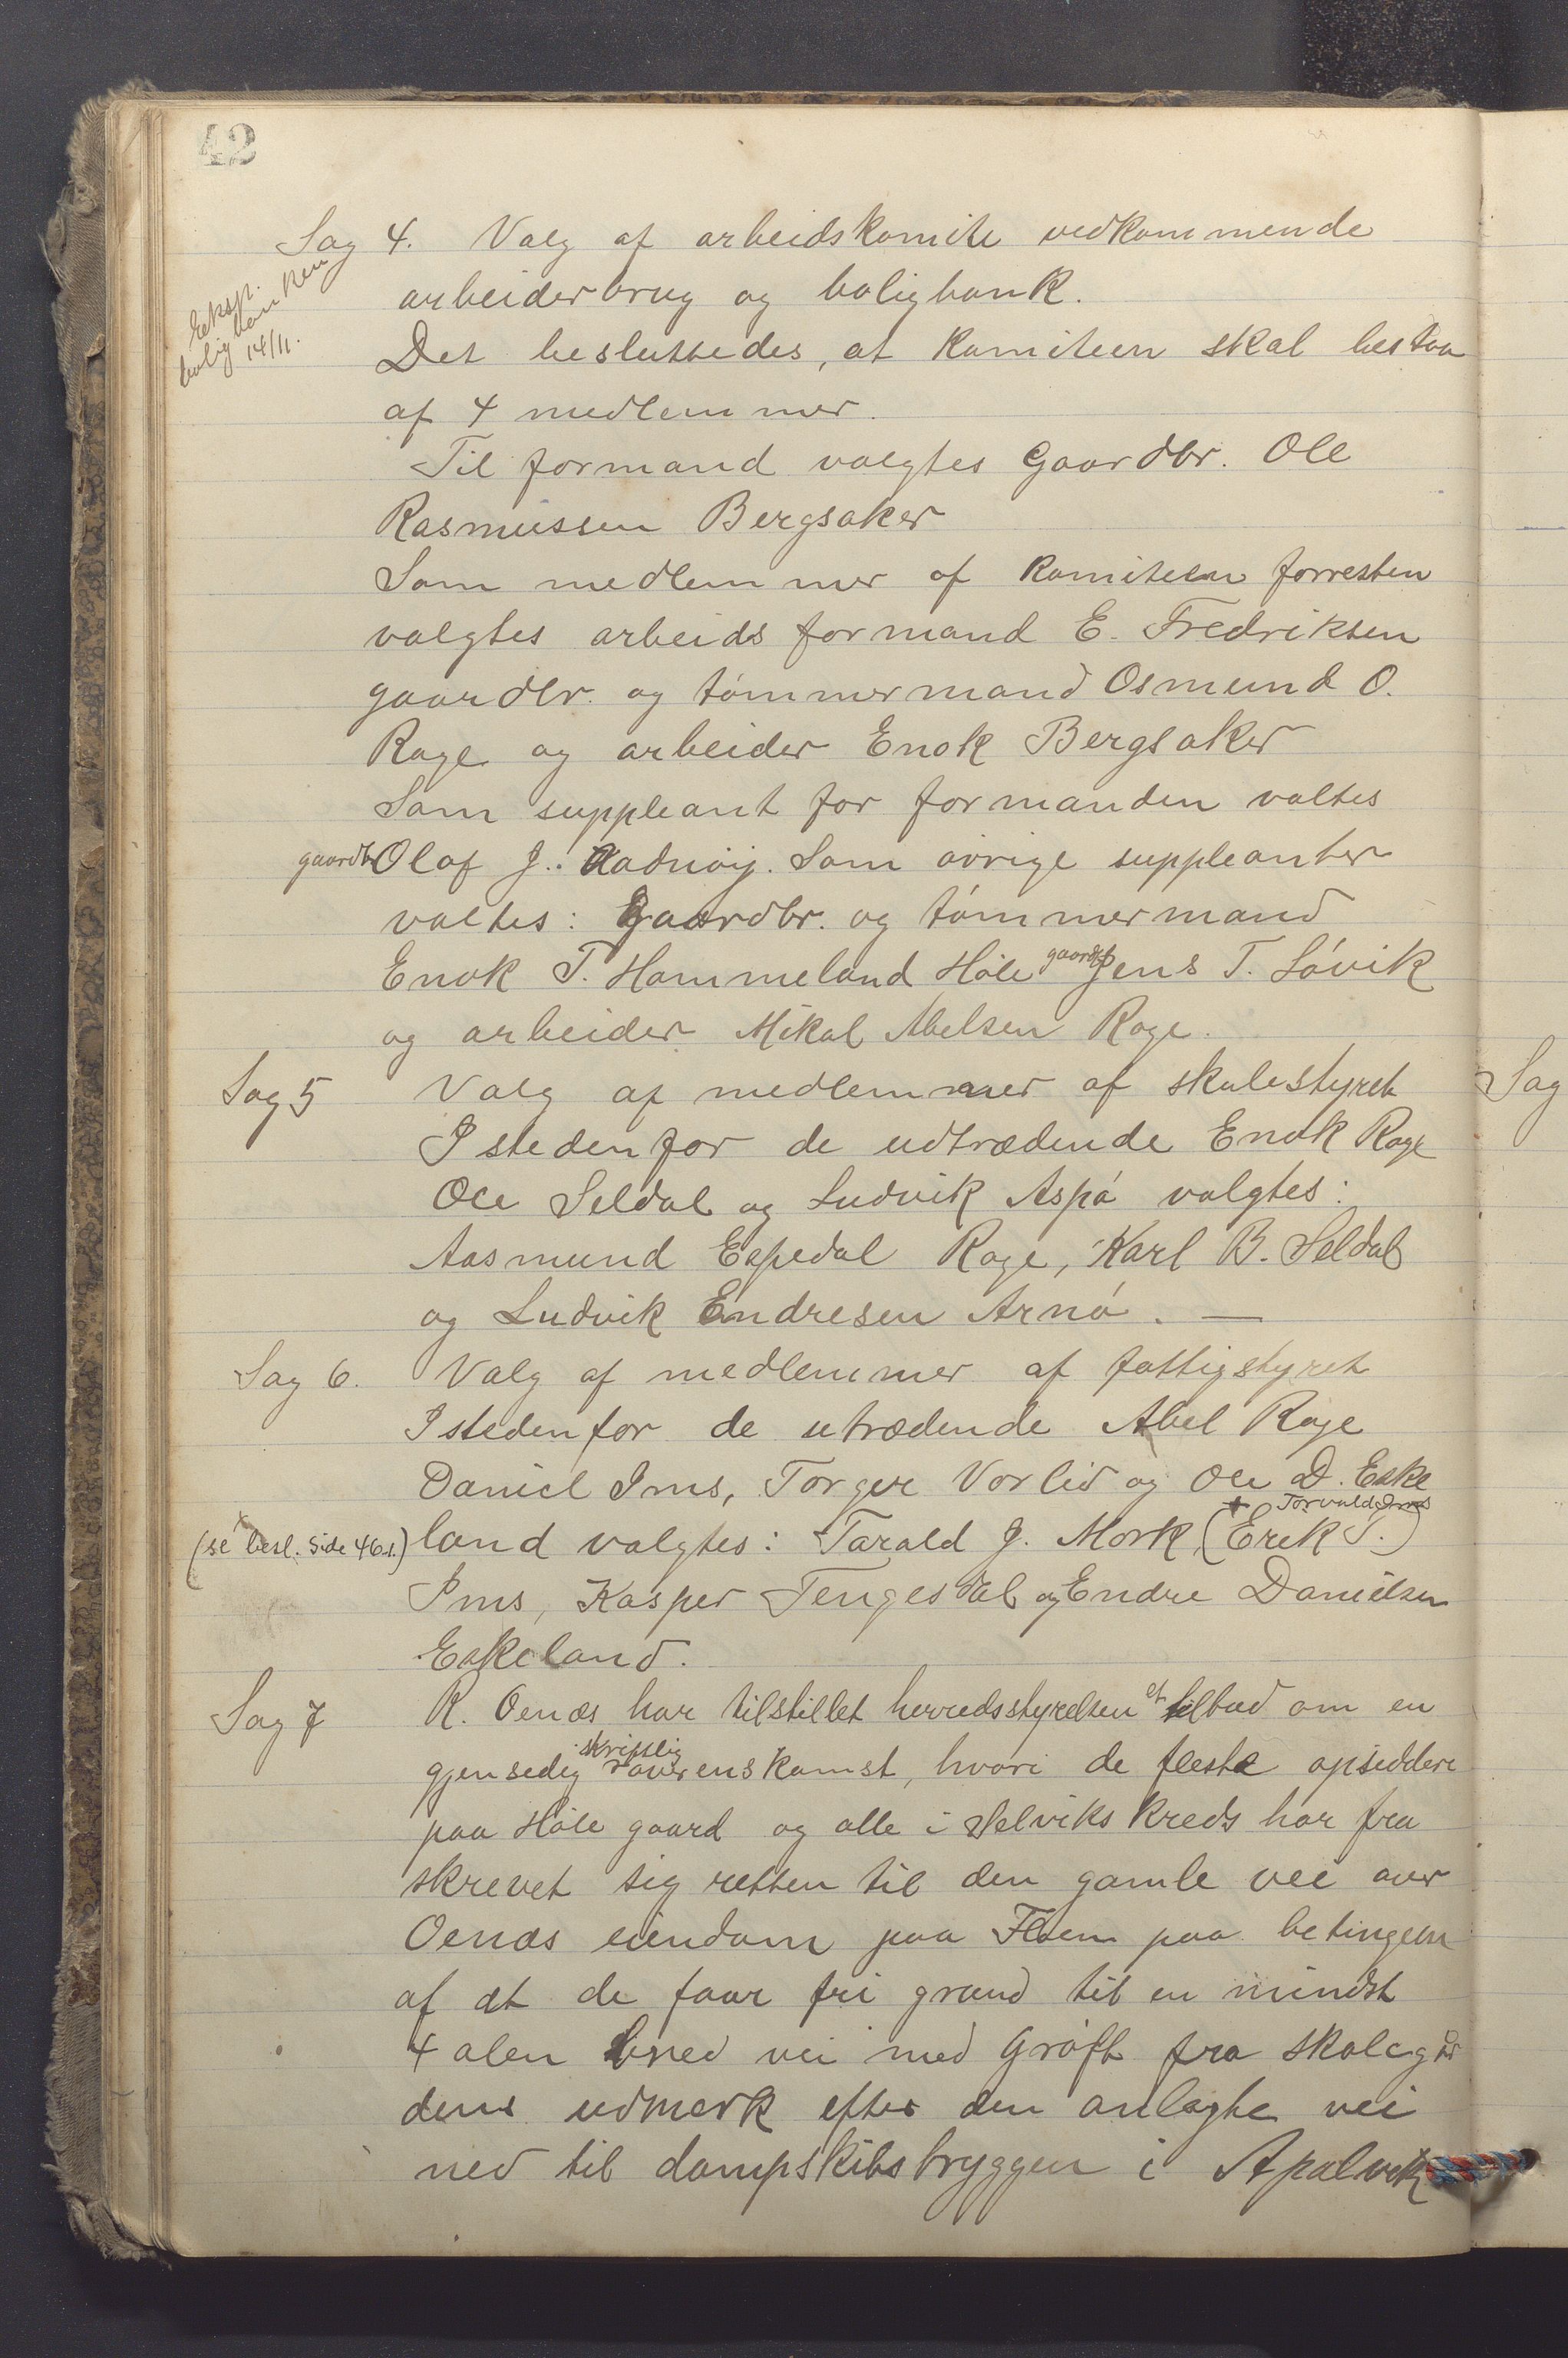 42
Sag 4. Valg af arbeidskomite vedkommende
Eksp.
boligbanken
14/11.
arbeiderbrug og boligbank.
Det besluttedes, at komiteen skal bestaa
af 4 medlemmer.
Til formand valgtes Gaardbr. Ole
Rasmussen Bergsaker
Som medlemmer af komiteen forresten
valgtes arbeidsformand E. Fredriksen
gaardbr. og tømmermand Osmund O.
Rage og arbeider Enok Bergsaker
Som suppleant for formanden valtes
gaardbr Olaf J. Adnøy. Som øvrige suppleanter
valtes: Gaardbr. og tømmermand
Enok T. Hommeland Høle gaardbr Jens T. Løvik
og arbeider Mikal Abelsen Rage.
Sag 5 Valg af medlemmer af skolestyret
Istedenfor de udtrædende Enok Rage
Ole Seldal og Ludvik Aspø valgtes:
Aasmund Espedal Rage, Karl B. Seldal
og Ludvik Endresen Arnø. —
Sag 6. Valg af medlemmer af fattigstyret
Istedenfor de utrædende Abel Rage
Daniel Ims, Torger Vorlid og Ole D. Eske
Torvald Ims
(se besl. side 46.) land valgtes: Tarald J. Mork, (Erik T.)
Ims, Kasper Tengesdal og Endre Danielsen
Eskeland.
Sag 7 R. Oenæs har tilstillet herredsstyrelsen et tilbud om en
gjensedig skriftlig overenskomst, hvori de fleste opsiddere
paa Høle gaard og alle i Selviks kreds har fra
skrevet sig retten til den gamle vei over
Oenæs eiendom paa Floen paa betingelse
af at de faar fri grund til en mindst
4 alen bred vei med Grøft fra skolegår
dens udmerk efter den anlagte vei
ned til dampskibsbryggen i Apalvik
Sag